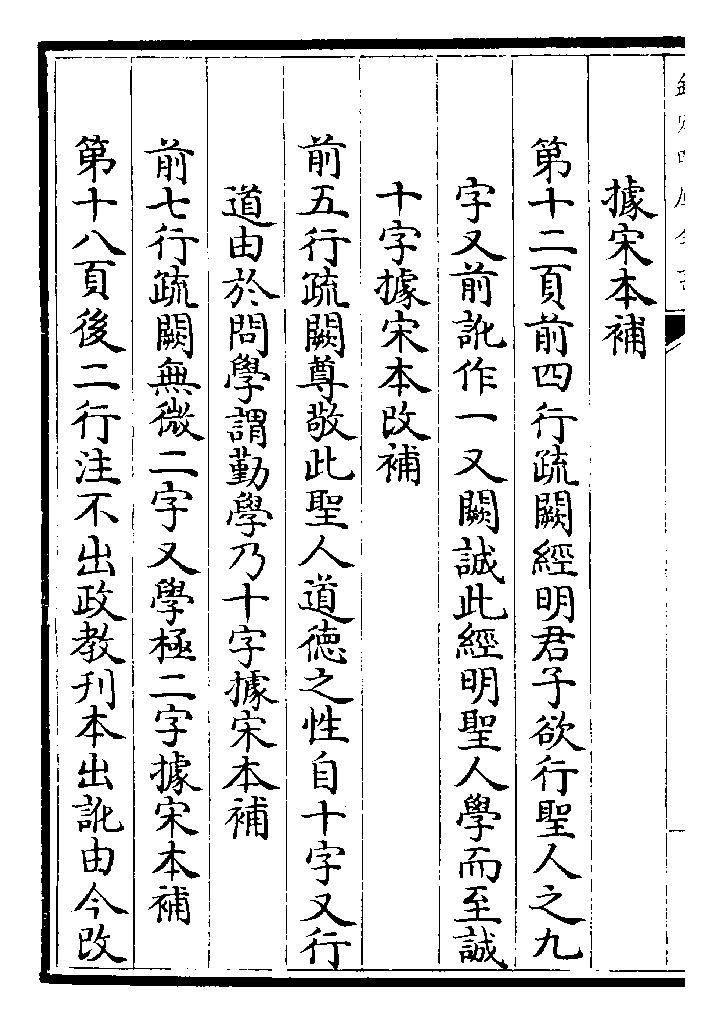 據宋本補
第十二頁前四行疏闕經明君子欲行聖人之九
字又前訛作一又闕誠此經明聖人學而至誠
十字據宋本改補
前五行疏闕尊敬此聖人道德之性自十字又行
道由於問學謂勤學乃十字據宋本補
前七行疏闕無微二字又學極二字據宋本補
第十八頁後二行注不出政教刋本出訛由今改